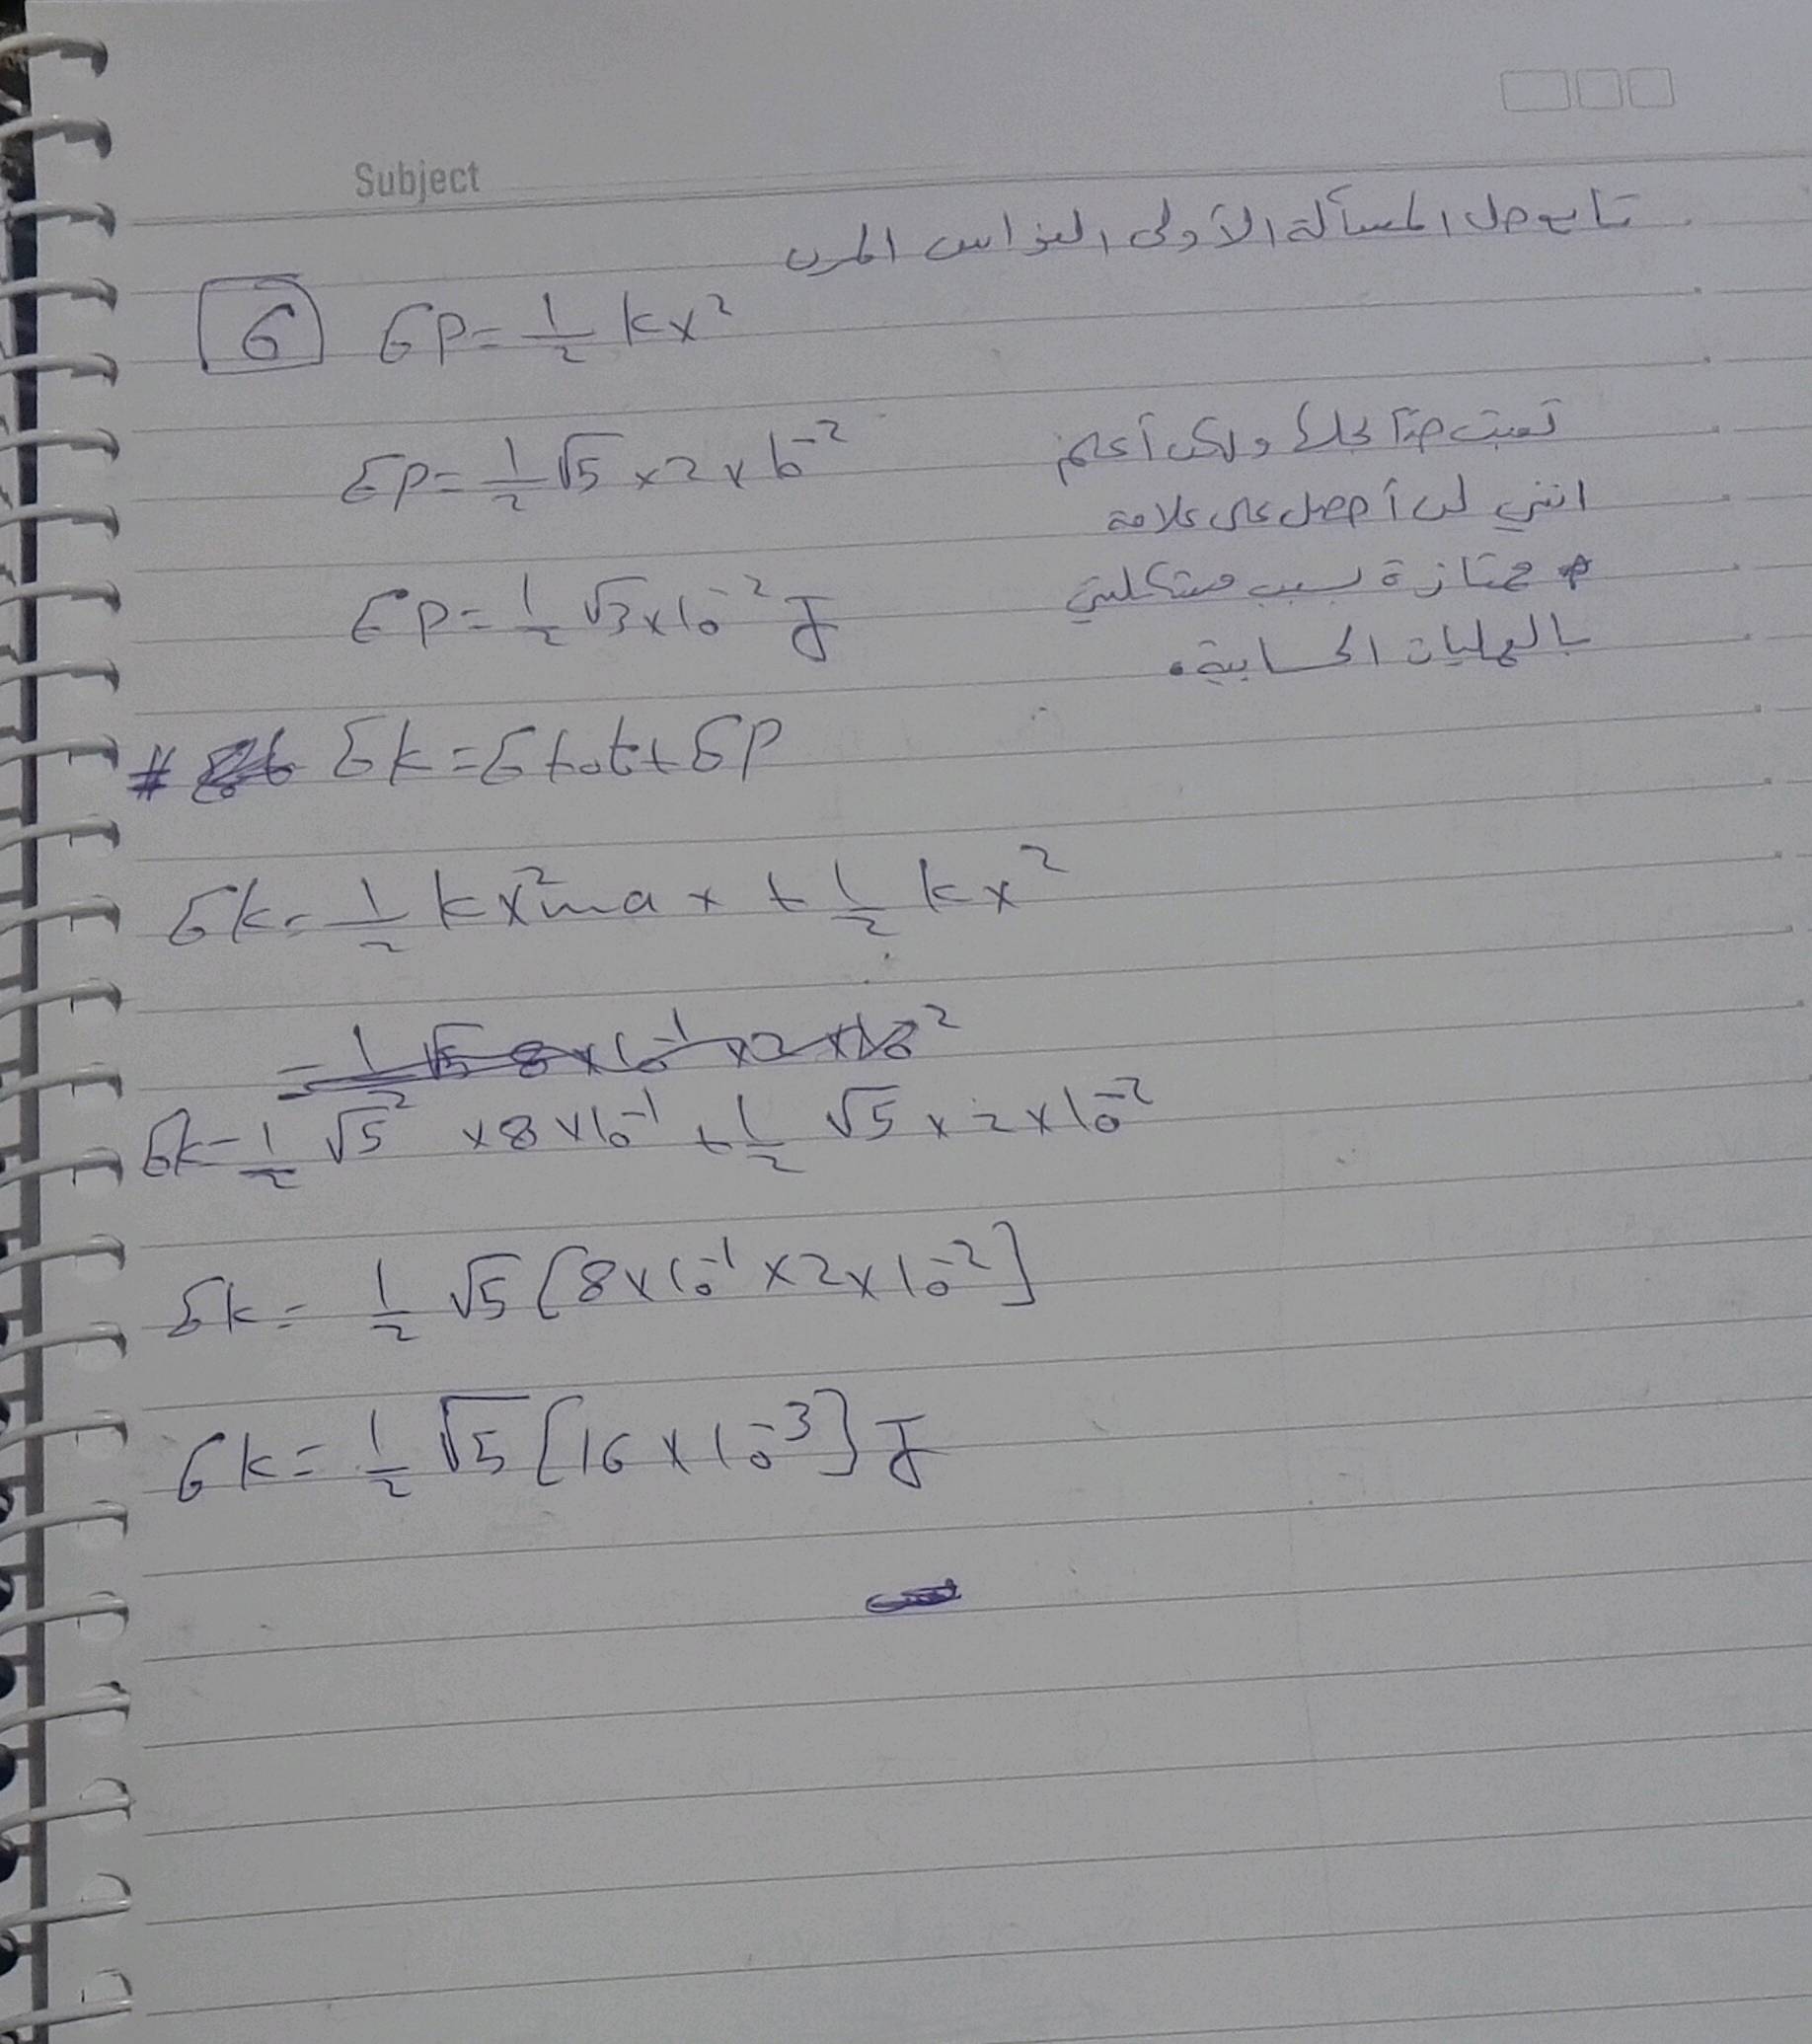 Subject
تابع حل المسألة الأولى النواس المرن
6 Ep = 1/2 kx²
Ep = 1/2 √5 × 2 × 10⁻²
تعبت جدّاً بحلها ولكن أعلم
انني لن أحصل على علامة
Ep = 1/2 √3 × 10⁻² J
ممتازة بسبب مشكلتي
بالعمليات الحسابية.
# Ek = Etot + Ep
Ek = 1/2 kx²max + 1/2 kx²
= 1/2 √5 8 × 10⁻¹ × 2 × 10⁻²
Ek = 1/2 √5² × 8 × 10⁻¹ + 1/2 √5 × 2 × 10⁻²
Ek = 1/2 √5 [8 × 10⁻¹ × 2 × 10⁻²]
Ek = 1/2 √5 [16 × 10⁻³] J